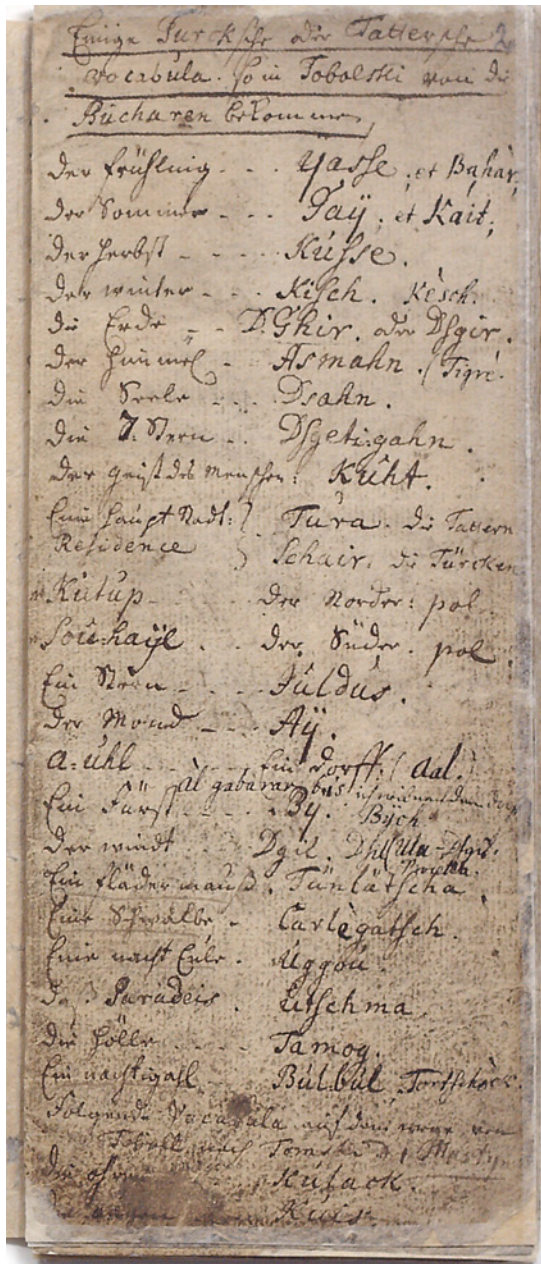 Einige Turcksche oder Tattersche 2
vocabula. so in Tobolski von die
Bucharen bekommen,
der frühling - - - yasse, et Bahár,
der Sommer - - - Jaÿ, et Kait,
der herbst - - - - Kusse.
der winter - - - Kisch. Kèsch.
die Erde - - D.Ghir. oder Dsgir.
der himmel - Asmahn. (Tigri.
die Seele - - - Dsahn.
die 7. Stern - - Dsgeti-gahn.
der geist des menschen: Kuht.
Eine haupt stadt: Tura. die Tattern
Residence Schair. die Türcken
Kutup - - - der Norder: pol
Souhaÿl - - der Süder. pol.
Ein Stern - - - Juldus.
der Mond - - - Aÿ.
a-uhl - - - Ein dorff. (aal.)
Ein Fürst - - - By. Bÿch
der windt - - Dgil.
Ein fläder mauß. Tünlätscha
Eine Schwalbe - Carlegatsch.
Eine nacht Eule - Uggou.
daß Paradeis. Utschma
die hölle - - - Tamog.
Ein nachtigahl Bulbul
Folgende Vocabula auf dem wege von
Toboll nach Tomski
die ohren Kulack.
die augen Kuis.